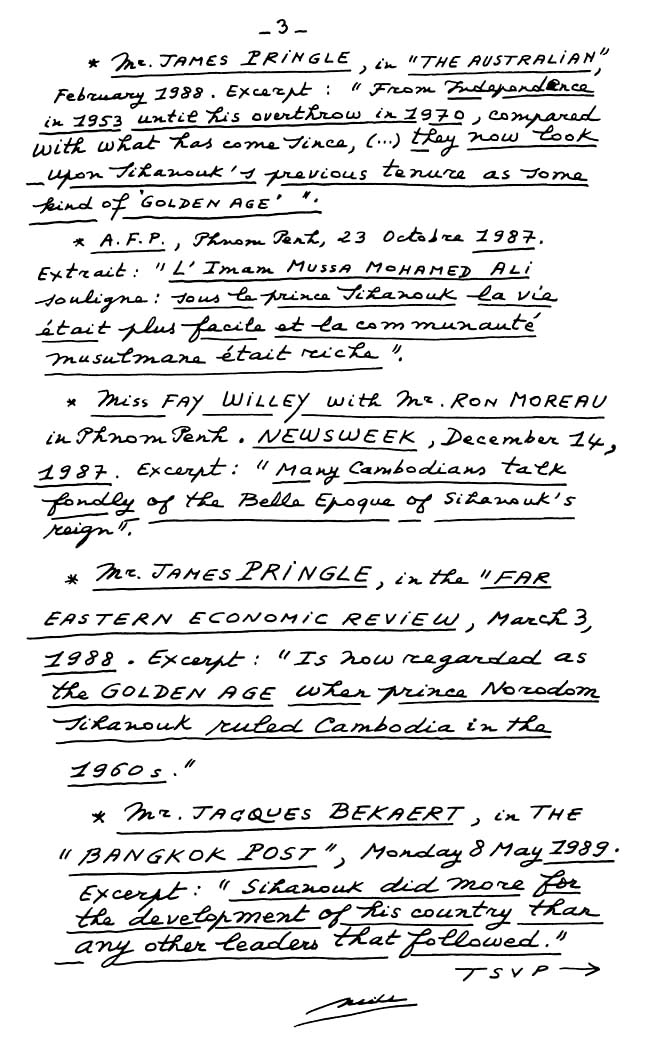 - 3 -
* Mr. JAMES PRINGLE, in "THE AUSTRALIAN",
February 1988. Excerpt : " From Independence
in 1953 until his overthrow in 1970, compared
with what has come since, (...) they now look
upon Sihanouk's previous tenure as some
kind of 'GOLDEN AGE' ".
* A.F.P., Phnom Penh, 23 Octobre 1987.
Extrait : " L'Imam MUSSA MOHAMED ALI
souligne : sous le prince Sihanouk la vie
était plus facile et la communauté
musulmane était riche ".
* Miss FAY WILLEY with Mr. RON MOREAU
in Phnom Penh. NEWSWEEK, December 14,
1987. Excerpt : " Many Cambodians talk
fondly of the Belle Epoque of Sihanouk's
reign ".
* Mr. JAMES PRINGLE, in the "FAR
EASTERN ECONOMIC REVIEW, March 3,
1988. Excerpt : " Is now regarded as
the GOLDEN AGE when prince Norodom
Sihanouk ruled Cambodia in the
1960s."
* Mr. JACQUES BEKAERT, in THE
" BANGKOK POST ", Monday 8 May 1989.
Excerpt : " Sihanouk did more for
the development of his country than
any other leaders that followed."
TSVP →